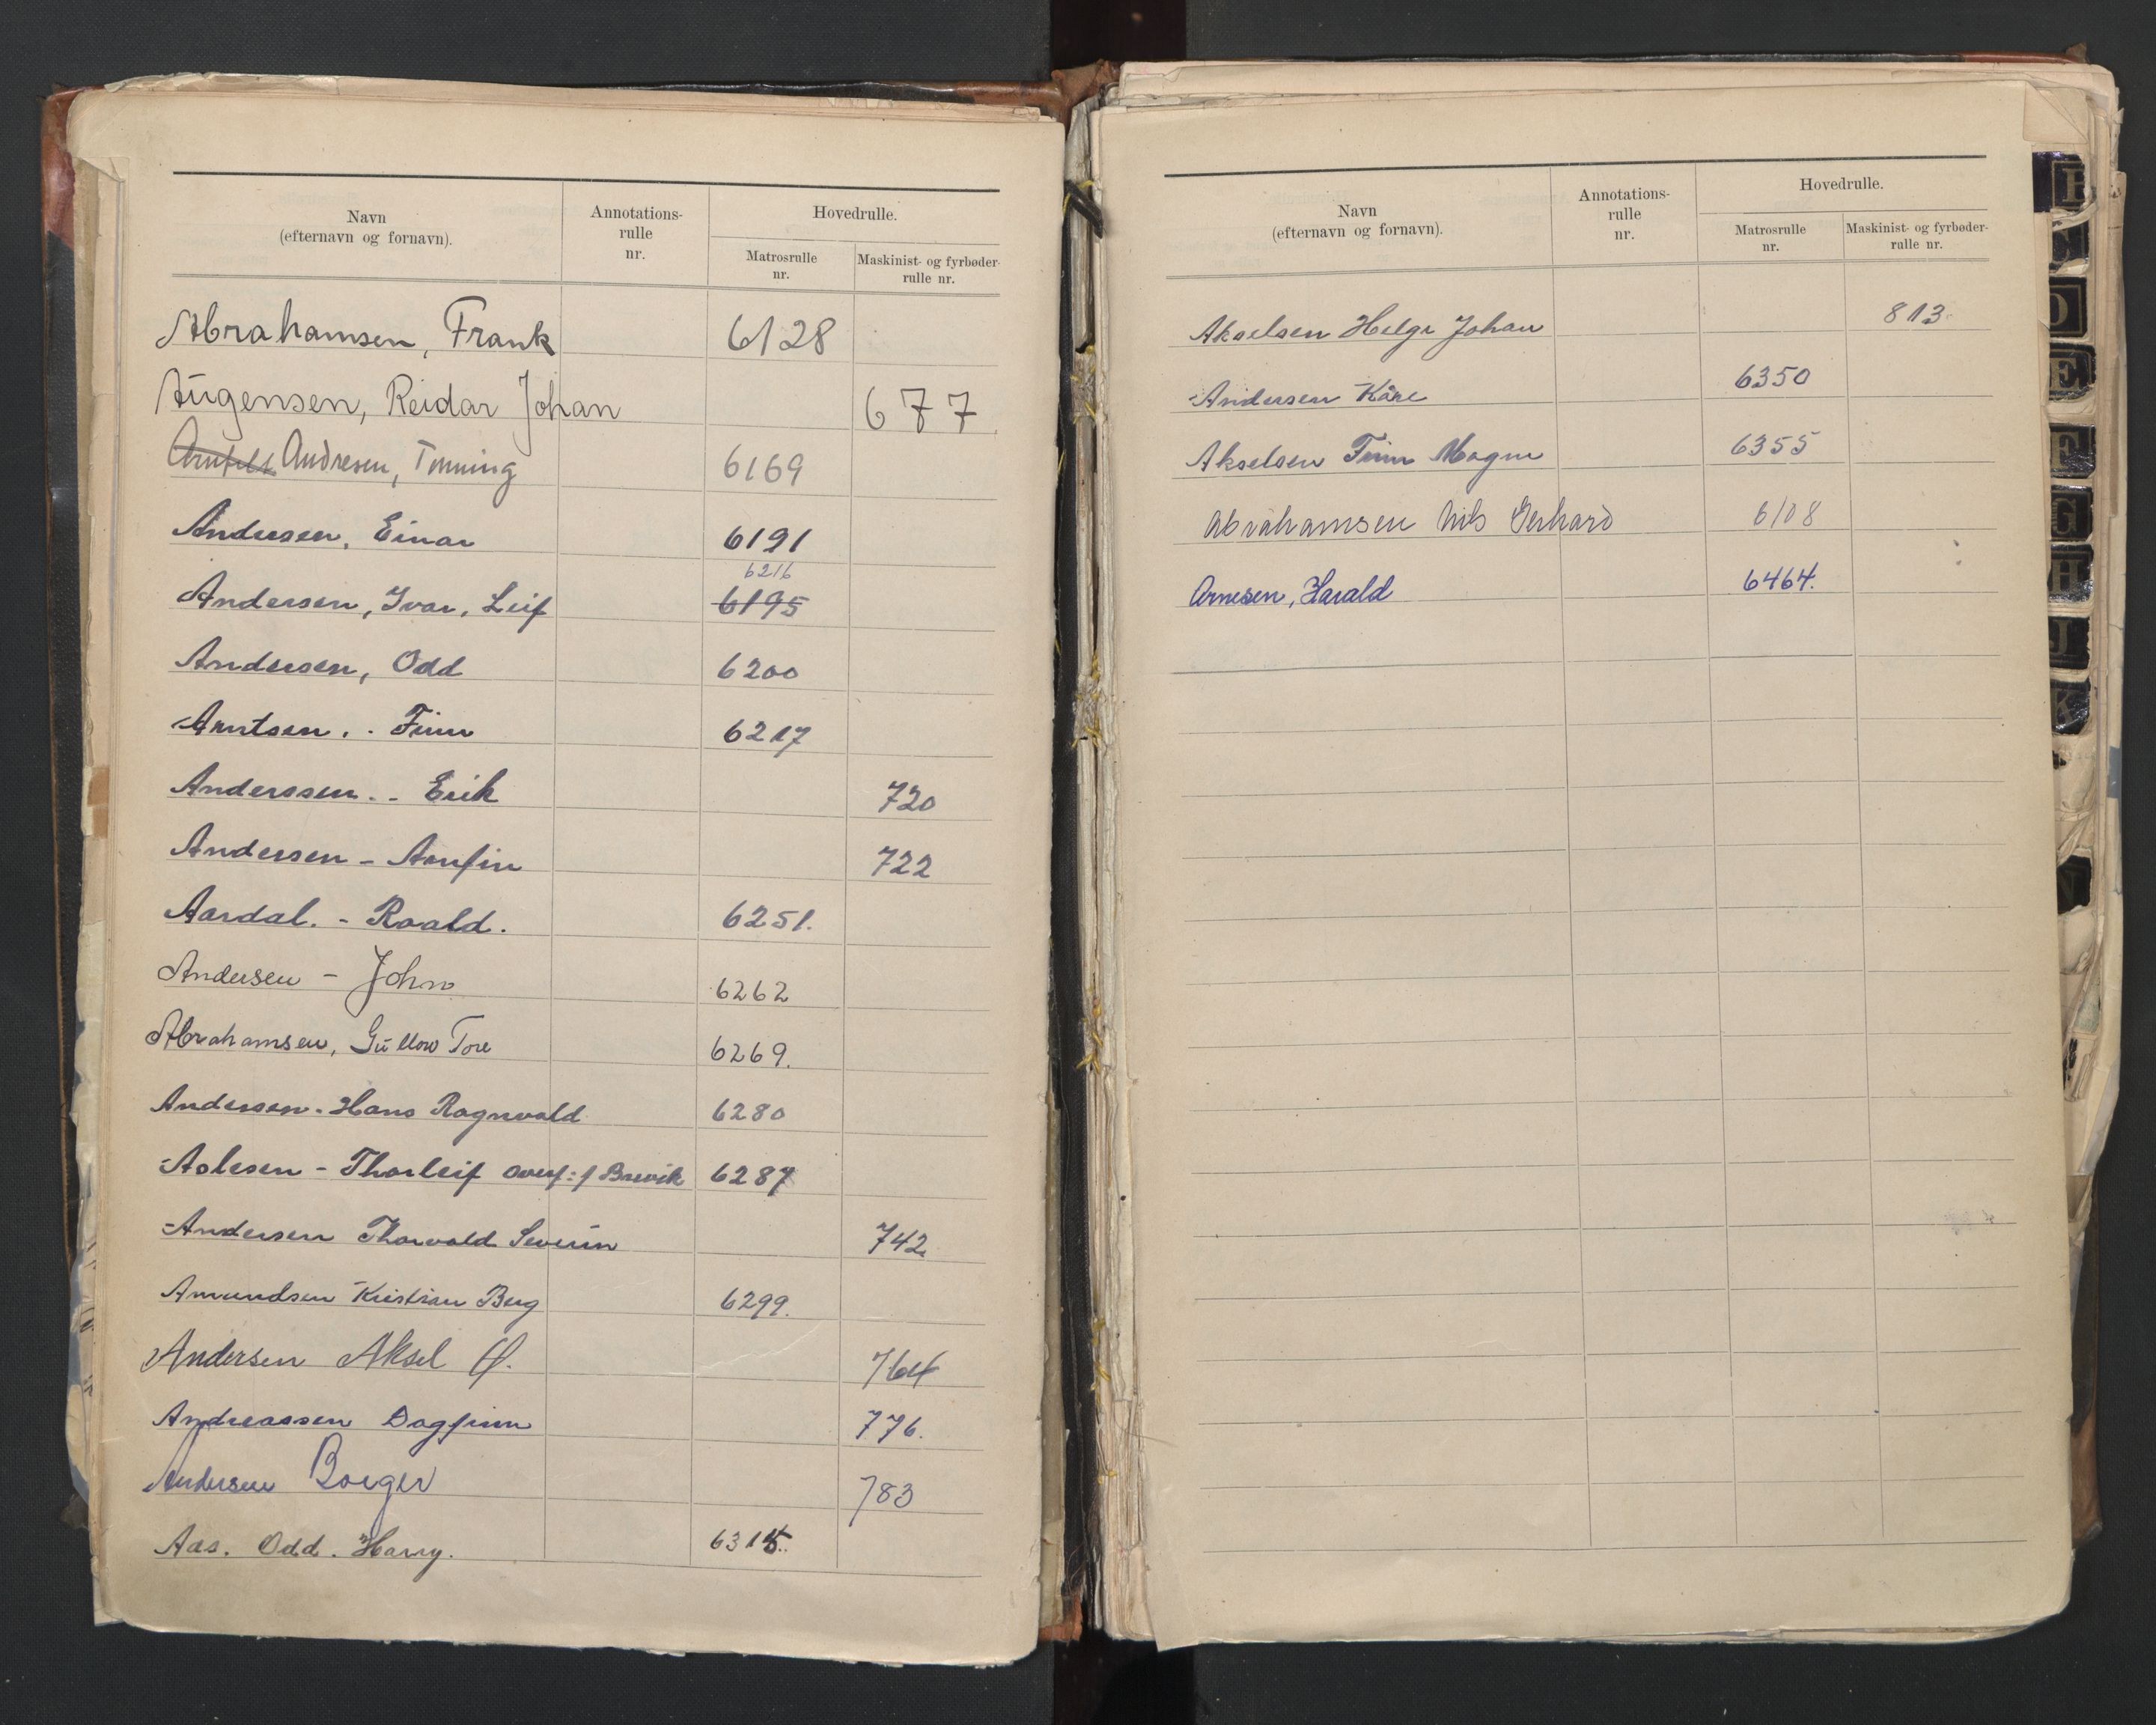 Navn
(efternavn og fornavn).
Annotations-
rulle
nr.
Hovedrulle.
Matrosrulle
nr.
Maskinist- og fyrbøder-
rulle nr.
Abrahamsen, Frank 6128
Augensen, Reidar Johan 677
Andresen, Tonning 6169
Andersen, Einar 6191
6216
Andersen, Ivar, Leif 6195
Andersen, Odd 6200
Arntsen. - Finn 6217
Anderssen. - Erik 720
Andersen - Arnfin 722
Aardal. - Roald. 6251.
Andersen - John 6262
Abrahamsen, Gullow Tore 6269.
Andersen - Hans Ragnvald 6280
Aslesen - Thorleif Overf: f Brevik 6287
Andersen Thorvald Severin 742
Amundsen Kristian Berg 6299.
Andersen Aksel 764
Andreassen Dagfinn 776.
Andersen Borger 783
Aas. Odd. Harry. 6315.
Navn
(efternavn og fornavn).
Annotations-
rulle
nr.
Hovedrulle.
Matrosrulle
nr.
Maskinist- og fyrbøder-
rulle nr.
Akselsen Helge Johan 813.
Andersen Kåre 6350
Akselsen Finn Magne 6355
Abrahamsen Nils Gerhard 6108
Arnesen, Harald 6464.
E
F
G
H
J
K
N